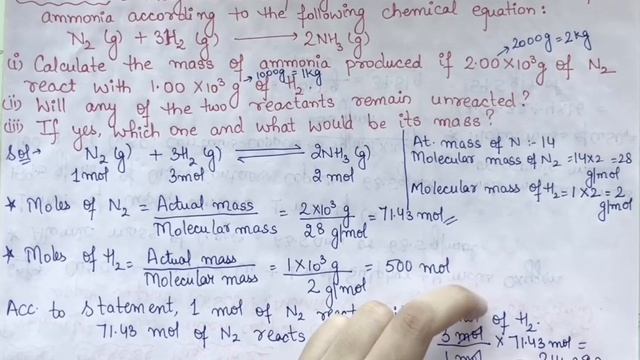 ammonia according to the following chemical equation:
N₂(g) + 3H₂(g) ⟶ 2NH₃(g)
→ 2000g = 2kg
(i) Calculate the mass of ammonia produced if 2.00×10³g of N₂
→ 1000g = 1kg
react with 1.00×10³g of H₂.
(ii) Will any of the two reactants remain unreacted?
(iii) If yes, which one and what would be its mass?
Sol→ N₂(g) + 3H₂(g) ⇌ 2NH₃(g)
1mol 3mol 2 mol
At. mass of N :- 14
Molecular mass of N₂ = 14×2 = 28 g/mol
Molecular mass of H₂ = 1×2 = 2 g/mol
* Moles of N₂ = Actual mass / Molecular mass = 2×10³ g / 28 g/mol = 71.43 mol
* Moles of H₂ = Actual mass / Molecular mass = 1×10³ g / 2 g/mol = 500 mol
Acc. to statement, 1 mol of N₂ of H₂.
71.43 mol of N₂ reacts 3 mol / 1 mol × 71.43 mol =